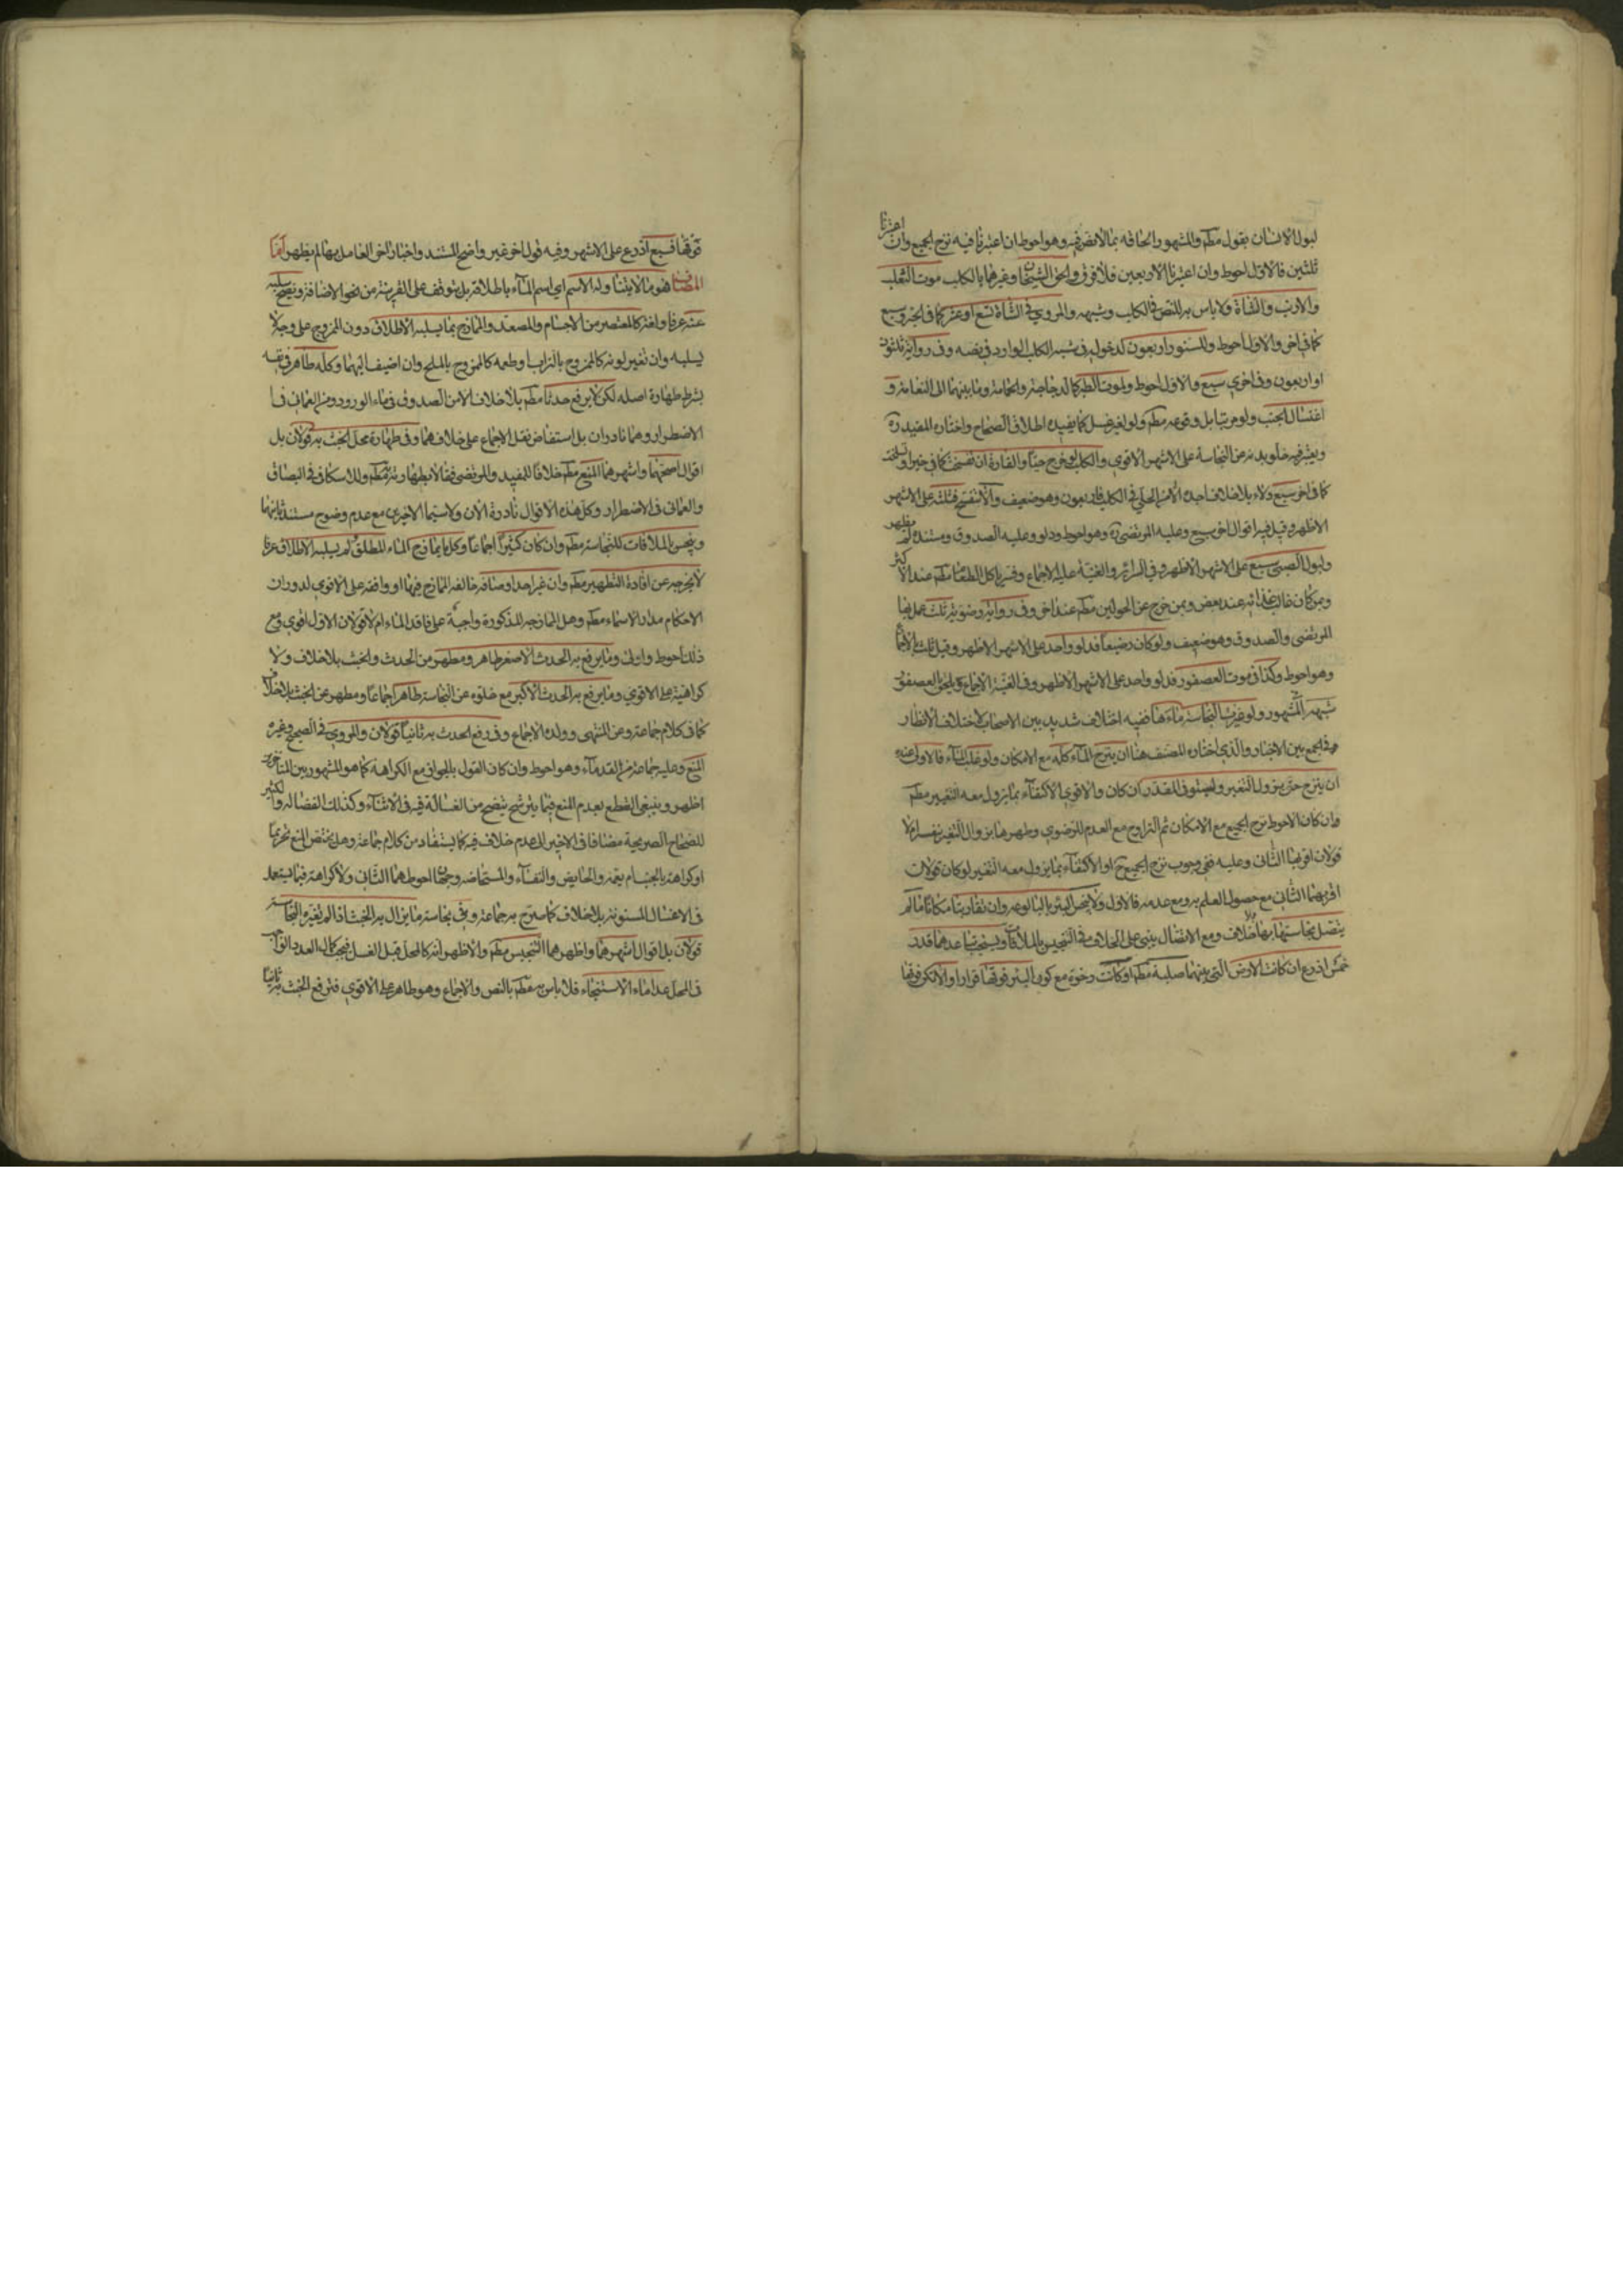 لبول الانسان بقول مطم والمشهور الحاقه بما لانص فيه وهو احوط ان اعتبرنا فيه نزح الجميع وان اعتبرنا
ثلثين فالاول احوط وان اعتبرنا الاربعين فلا فرق والحق الشيخان وغيرهما بالكلب موت الثعلب
والارنب والشاة ولا باس به للنص في الكلب وشبهه والمروي في الشاة تسع او عشر كما في الخبر وسبع
كما في اخر والاول احوط وللسنور اربعون لدخوله في شبه الكلب الوارد في نصه وفي رواية ثلثون
او اربعون وفي اخرى سبع والاول احوط ولموت الطير كالدجاجة والحمامة وما بينهما الى النعامة و
اغتسال الجنب ولو مرتبا بل وقوعه مطم ولو لغير غسل كما يفيده اطلاق الصحاح واختاره المفيد ره
ويعتبر فيه خلو بدنه عن النجاسة على الاشهر الاقوى والكلب لو خرج حيا والفارة ان تفسخت كما في خبر او تسلخت
كما في اخر سبع دلاء بلا خلاف اجده الا من الحلي في الكلب فاربعون وهو ضعيف والا تنفسخ فثلثة على الاشهر
الاظهر وقيل فيه اقوال اخر سبع وعليه المرتضى ره وهو احوط ودلو وعليه الصدوق ومستنده لم يظهر
ولبول الصبي سبع على الاشهر الاظهر وفي السرائر والغنية عليه الاجماع وفسر باكل الطعام مطم عند الاكثر
وبمن كان غالب غذائه عند بعض وبمن خرج عن الحولين مطم عند اخر وفي رواية رضوية ثلث عمل بها
المرتضى والصدوق وهو ضعيف ولو كان رضيعا فدلو واحد على الاشهر الاظهر وقيل ثلث بالاجماع
وهو احوط وكذا في موت العصفور فدلو واحد على الاشهر الاظهر وفي الغنية الاجماع ويلحق بالعصفور
شبهه في المشهور ولو غيرت النجاسة ماءها ففيه اختلاف شديد بين الاصحاب لاختلاف الانظار
في الجمع بين الاخبار والذي اختاره المصنف هنا ان ينزح الماء كله مع الامكان ولو غلب الماء فالاولى عنده
ان ينزح حتى يزول التغير ويستوفى المقدر ان كان والاقوى الاكتفاء بما يزول معه التغير مطم
وان كان الاحوط نزح الجميع مع الامكان ثم التراوح مع العدم للرضوي وطهرها بزوال التغير بنفسه ام لا
قولان اقربهما الثاني وعليه ففي وجوب نزح الجميع ح او الاكتفاء بما يزول معه التغير لو كان قولان
اقربهما الثاني مع حصول العلم به ومع عدمه فالاول ولا ينجس البئر بالبالوعة وان تقاربتا مكانا ما لم
يتصل نجاستها بها بلا خلاف ومع الاتصال يبنى على الخلاف في التنجيس بالملاقاة ويستحب تباعدهما قدر
خمس اذرع ان كانت الارض التي بينهما صلبة مطم او كانت رخوة مع كون البئر فوقها قرارا والا تكن فوقها
فوقها فسبع اذرع على الاشهر وفيه قول اخر غير واضح المستند واخبار اخر العامل بها لم يظهر اما
المضاف فهو ما لا يتناوله الاسم اي اسم الماء باطلاقه بل يتوقف على القرينة من نحو الاضافة ويصح سلبه
عنه عرفا ولغة كالمعتصر من الاجسام والمصعد والممازج بما يسلبه الاطلاق دون الممزوج على وجه لا
يسلبه وان تغير لونه كالممزوج بالتراب او طعمه كالممزوج بالملح وان اضيف اليهما وكله طاهر في نفسه
بشرط طهارة اصله لكن لا يرفع حدثا مطم بلا خلاف الا من الصدوق في ماء الورد ومن العماني في
الاضطرار وهما نادران بل استفاض نقل الاجماع على خلافهما وفي طهارة محل الخبث به قولان بل
اقوال اصحها واشهرهما المنع مطم خلافا للمفيد والمرتضى فقالا بطهارته مطم وللاسكافي في البصاق
والعماني في الاضطرار وكل هذه الاقوال نادرة الان ولاسيما الاخيرين مع عدم وضوح مستند ثانيهما
وينجس بالملاقات للنجاسة مطم وان كان كثيرا اجماعا وكلما يمازج الماء المطلق ولم يسلبه الاطلاق عرفا
لا يخرجه عن افادة التطهير مطم وان غير احد اوصافه خالفه الممازج فيها او وافقه على الاقوى لدوران
الاحكام مدار الاسماء مطم وهل الممازجة المذكورة واجبة على فاقد الماء ام لا قولان الاول اقوى ومع
ذلك احوط واولى وما يرفع به الحدث الاصغر طاهر ومطهر من الحدث والخبث بلا خلاف ولا
كراهية على الاقوى وما يرفع به الحدث الاكبر مع خلوه عن النجاسة طاهر اجماعا ومطهر عن الخبث بلا خلاف
كما في كلام جماعة وعن المنتهى وولده الاجماع وفي رفع الحدث به ثانيا قولان والمروي في الصحيح وغيره
المنع وعليه جماعة من القدماء وهو احوط وان كان القول بالجواز مع الكراهة كما هو المشهور بين المتاخرين
اظهر وينبغي القطع بعدم المنع فيما يترشح ينضح من الغسالة فيه في الاثناء وكذلك الفضالة والكثير
للصحاح الصريحة مضافا في الاخير الى عدم خلاف فيه كما يستفاد من كلام جماعة وهل يختص المنع تحريما
او كراهة بالجنب ام يعمه والحايض والنفساء والمستحاضة وجهان احوطهما الثاني ولا كراهة فيما يستعمل
في الاغسال المسنونة بلا خلاف كما صرح به جماعة وفي نجاسة ما يزال به الخبث اذا لم تغيره النجاسة
قولان بل اقوال اشهرهما واظهرهما التنجيس مطم والاظهر انه كالمحل قبل الغسل فيجب اكمال العدد الواجب
في المحل عدا ماء الاستنجاء فلا باس به مطم بالنص والاجماع وهو طاهر على الاقوى فيرفع الخبث به ثانيا